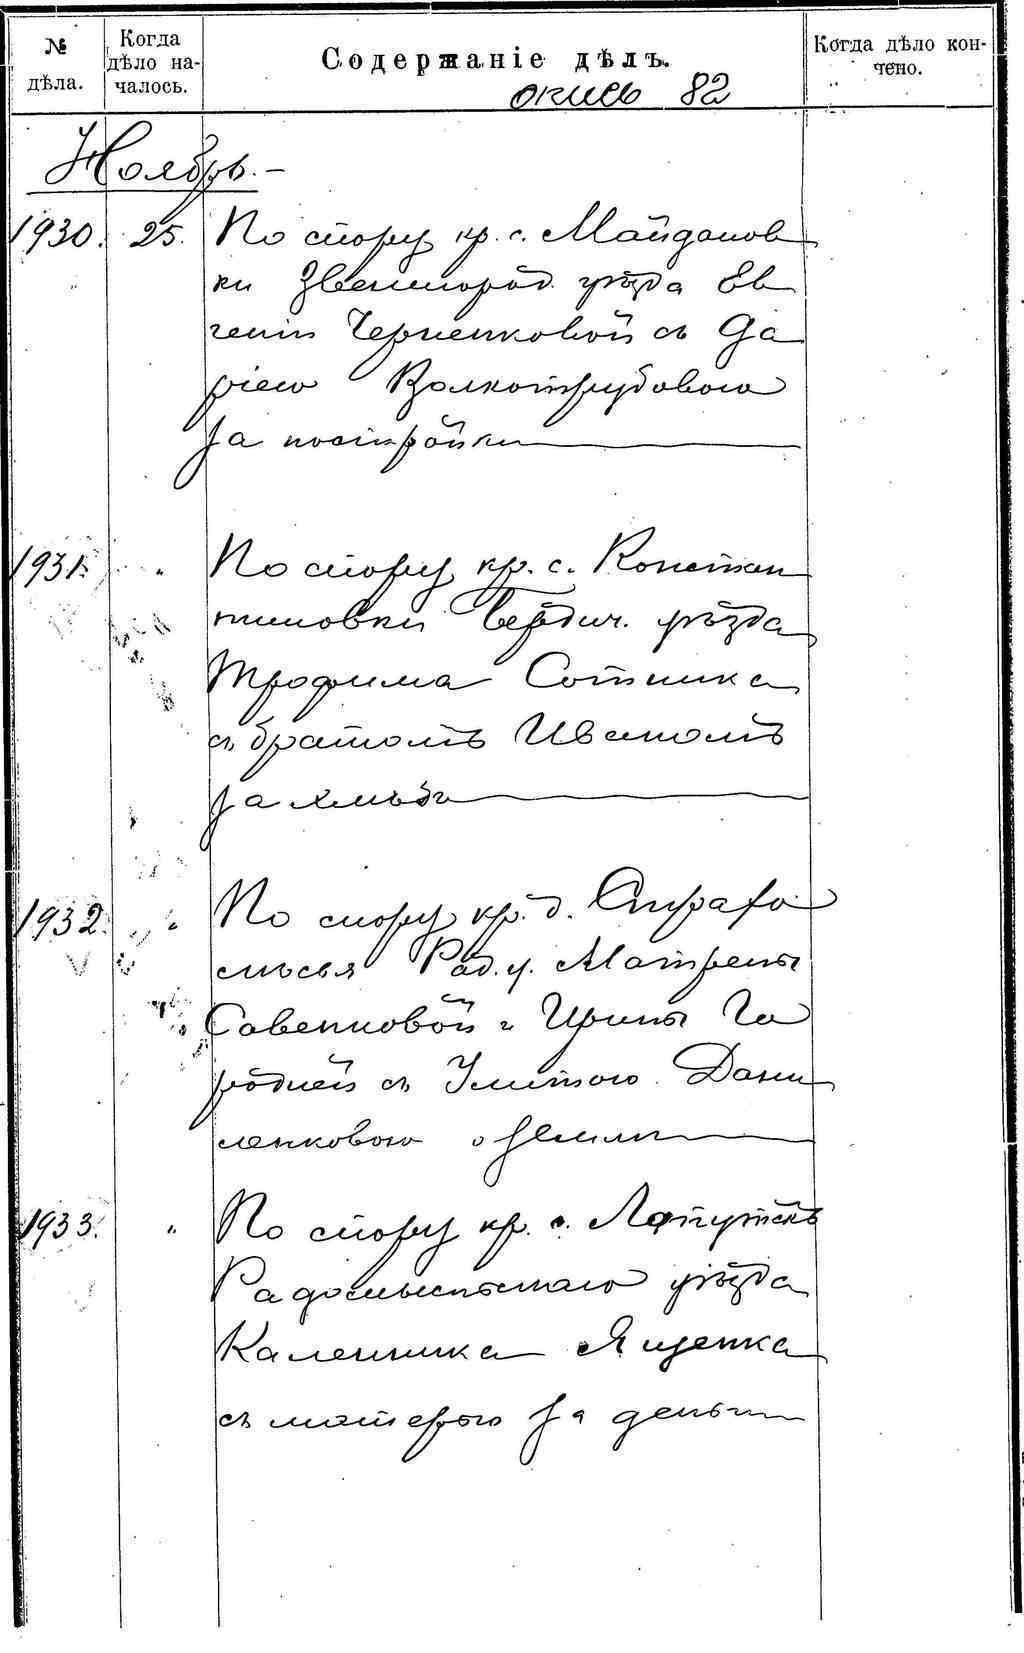 № дѣла.
Когда дѣло на-
чалось.
Содержаніе дѣлъ.
Когда дѣло кон-
чено.
опись 82
Ноябрь.-
1930. 25. По спору кр. с. Майданов
ки Звенигород. уѣзда Ев
геніи Черненковой съ Да
ріею Волкотрубовою
за постройки
1931. " По спору кр. с. Констан
тиновки Бердич. уѣзда
Трофима Сотника
съ братомъ Иваномъ
за хлѣбъ
1932. " По спору кр. д.
Рад. у. Матрены
Савенковой и Ирины Го
родней съ Улитою Дани
ленковою о землѣ
1933. " По спору кр. с.
Радомысльскаго уѣзда
Каленника Ященка
съ матерью за деньги